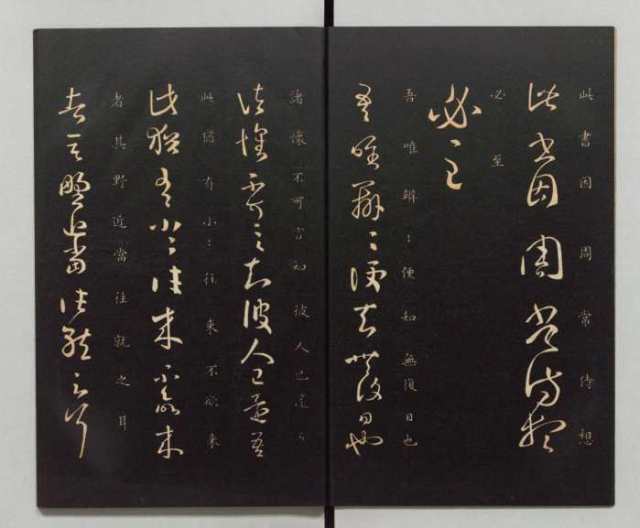 此書因周常侍想
此書因周常侍想
必至
必至
吾唯辦〻便知無復日也
吾唯辦〻便知無復日也
諸懷不可言知彼人已還
諸懷不可言知彼人已還
此猶有小〻往來不欲來
此猶有小〻往來不欲來
者其野近當往就之耳
者其野近當往就之耳